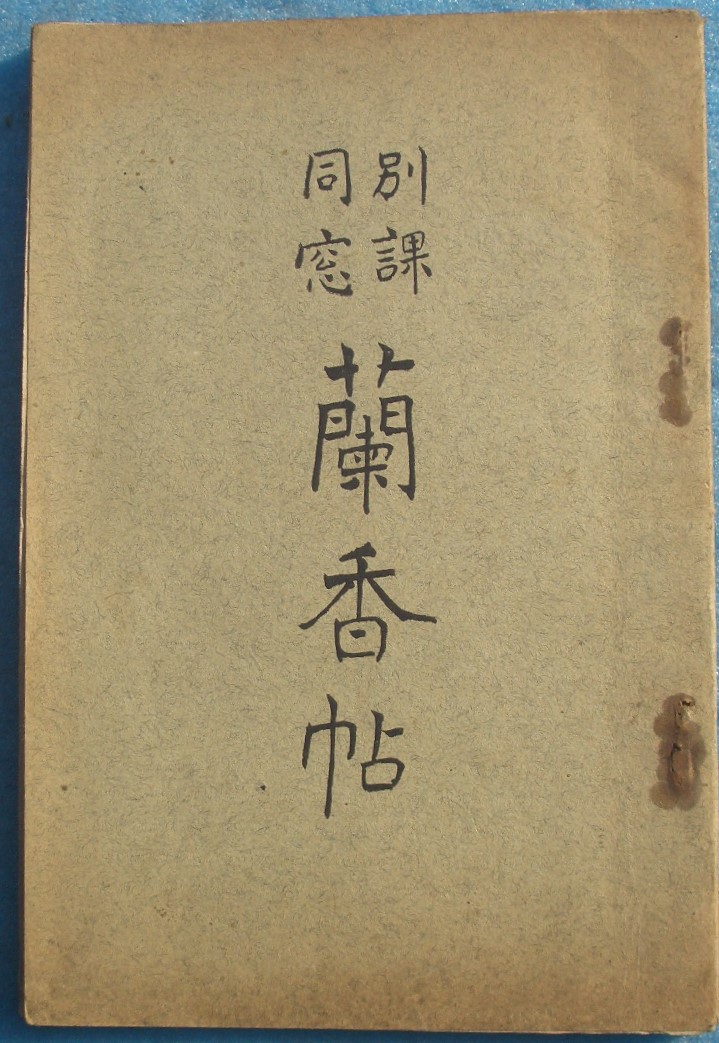 別課
同窓
蘭香帖